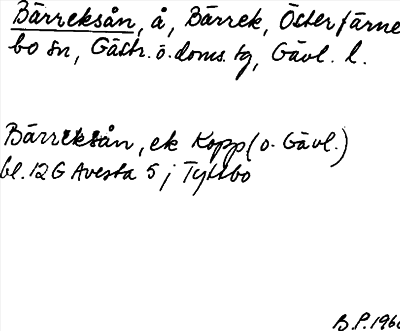 Bärreksån, å, Bärrek, Österfärne
bo sn, Gästr. ö. doms. tg, Gävl. l.
Bärreksån, ek Kopp (o. Gävl.)
bl. 12 G Avesta 5 j Tyttbo
B.P. 196